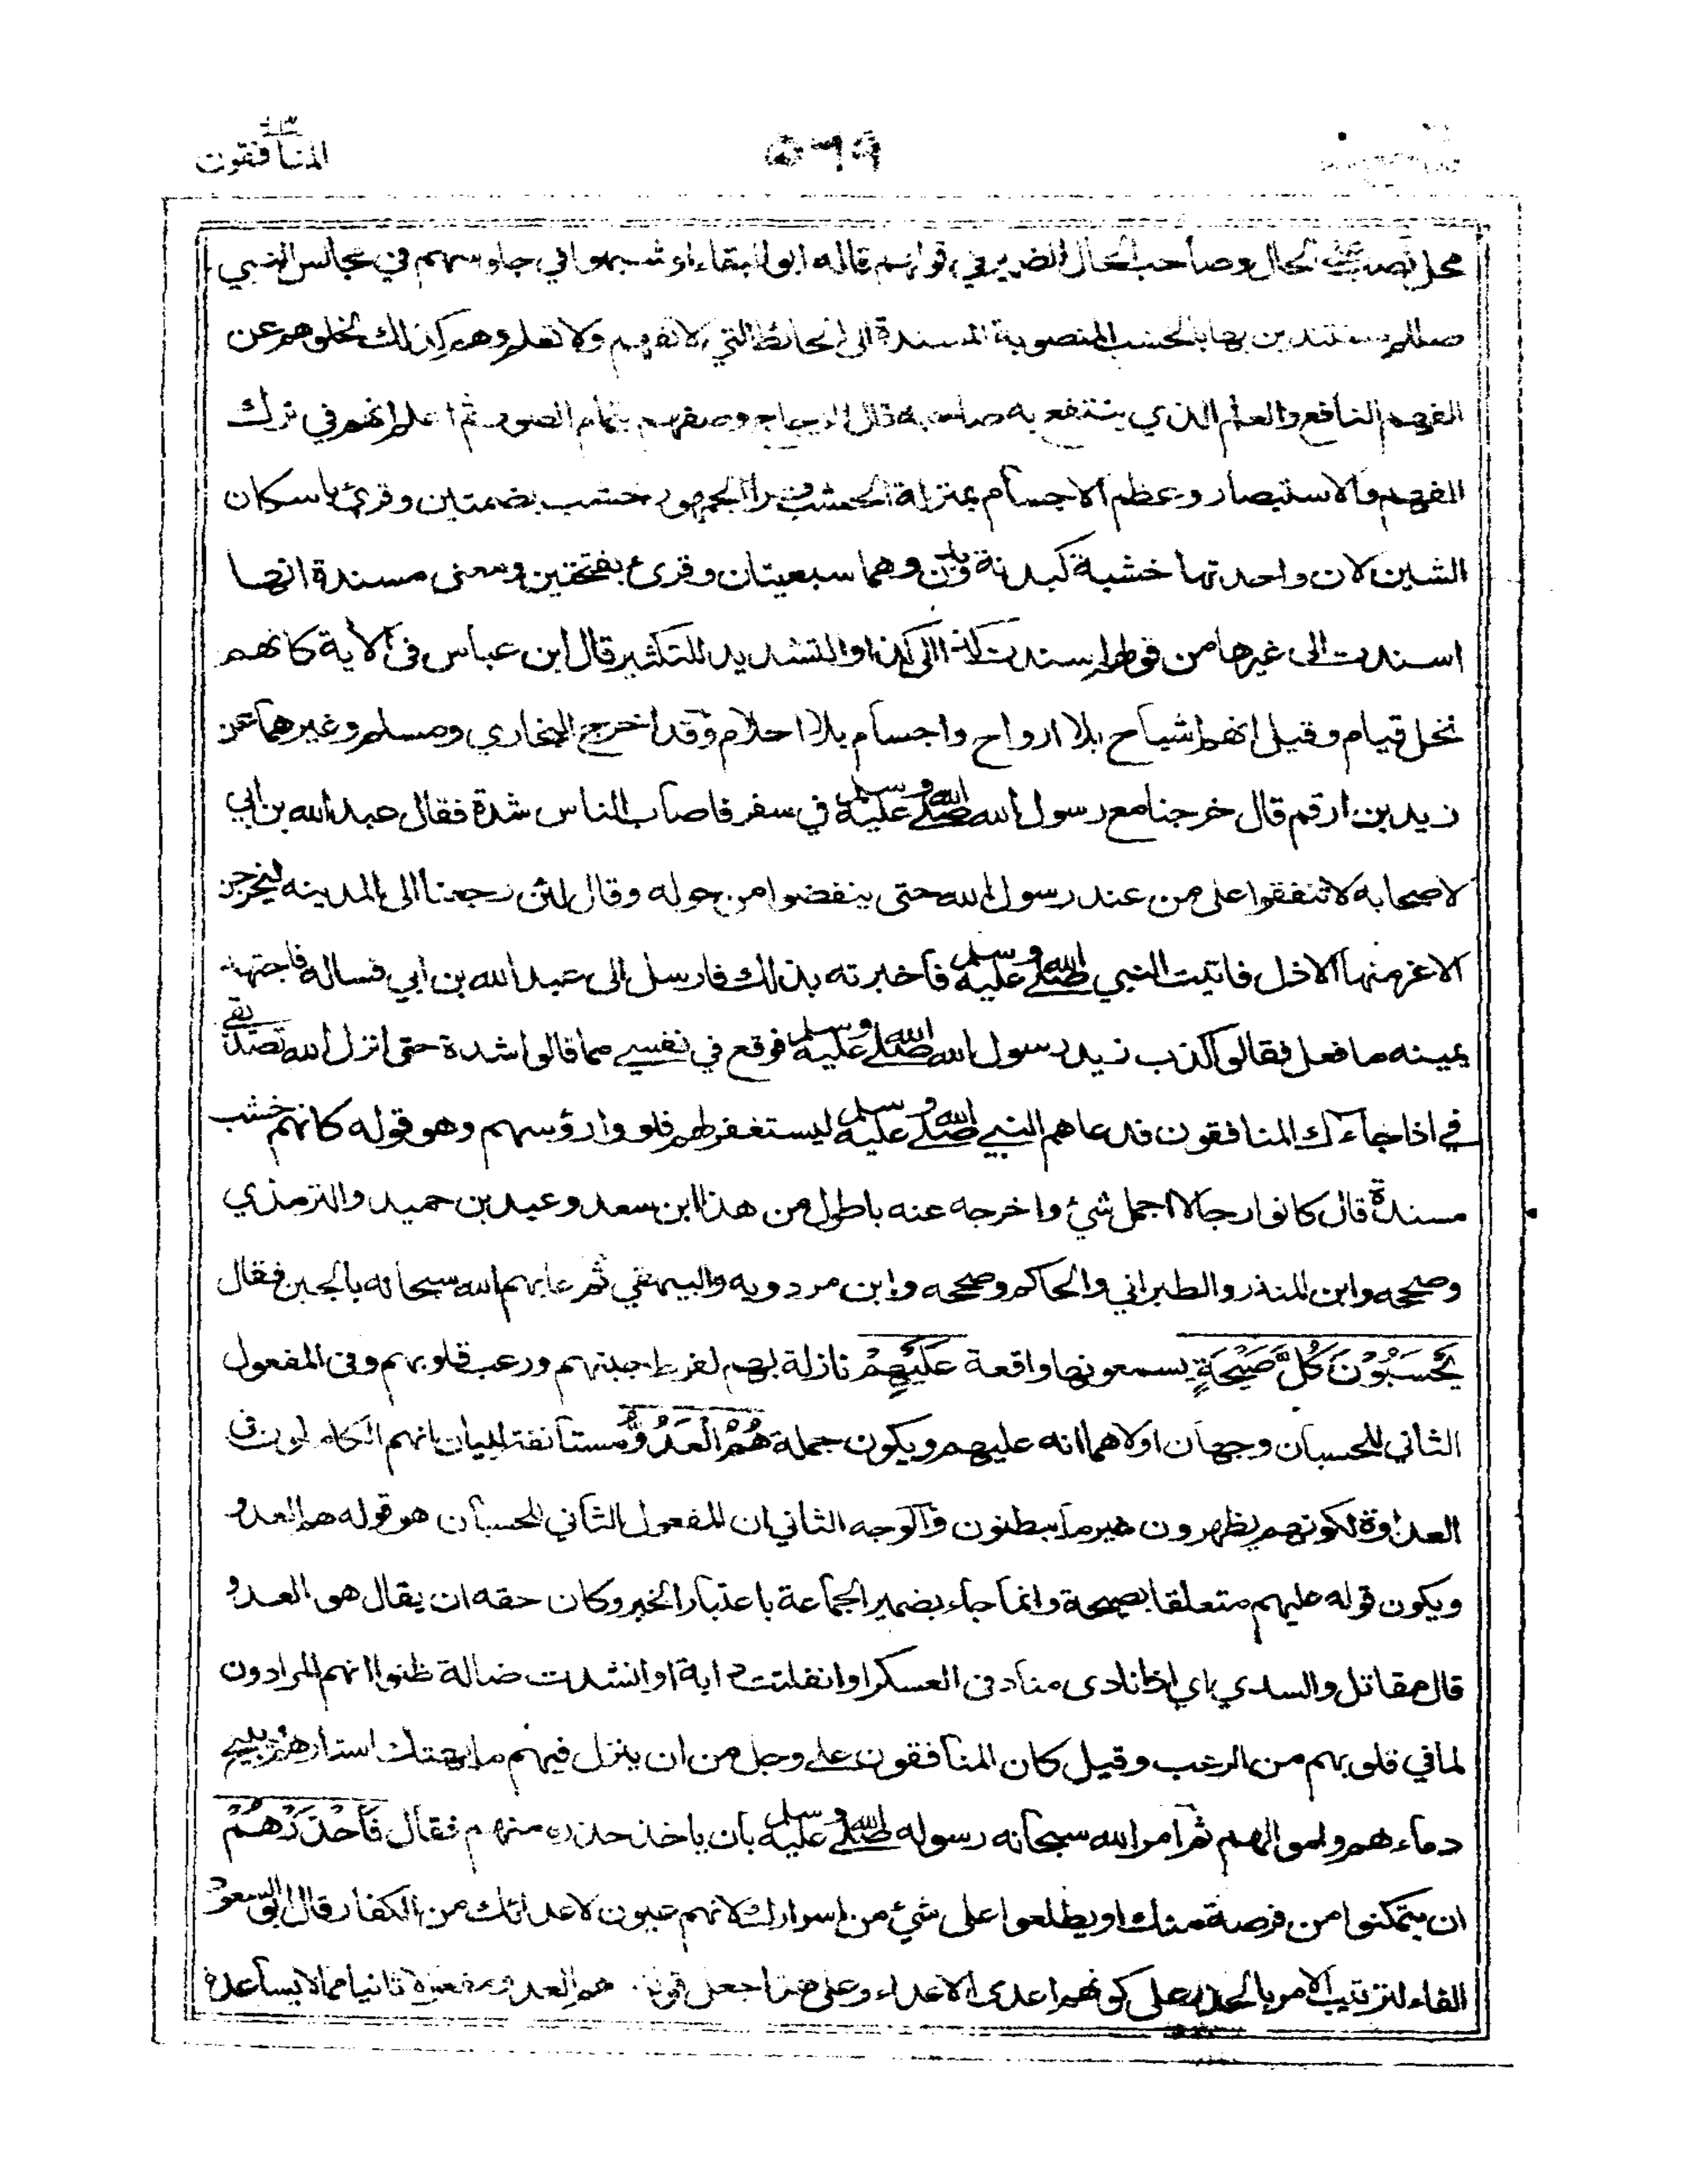 المنافقون ٥٦٩
محل نصب على الحال وصاحب الحال الضمير في قولهم قاله ابو البقاء او شبهوا في جلوسهم في مجالس النبي
صللم مستندين بها بالخشب المنصوبة المسندة الى الحائط التي لا تفهم ولا تعلم وهم كذلك لخلوهم عن
الفهم النافع والعلم الذي ينتفع به صاحبه قال الزجاج وصفهم بتمام الصور ثم اعلم انهم في ترك
الفهم والاستبصار وعظم الاجسام بمنزلة الخشب قرأ الجمهور خشب بضمتين وقرئ باسكان
الشين لان واحدتها خشبة كبدنة وبدن وهما سبعيتان وقرئ بفتحتين ومعنى مسندة انها
اسندت الى غيرها من قولهم اسندت كذا الى كذا والتشديد للتكثير قال ابن عباس في الاية كانهم
نخل قيام وقيل انهم اشباح بلا ارواح واجسام بلا احلام وقد اخرج البخاري ومسلم وغيرهما عن
زيد بن ارقم قال خرجنا مع رسول الله صلى الله عليه وسلم في سفر فاصاب الناس شدة فقال عبد الله بن ابي
لاصحابه لا تنفقوا على من عند رسول الله حتى ينفضوا من حوله وقال لئن رجعنا الى المدينه ليخرجن
الاعز منها الاذل فاتيت النبي صلى الله عليه وسلم فاخبرته بذلك فارسل الى عبد الله بن ابي فساله فاجتهد
يمينه ما فعل فقالوا كذب زيد رسول الله صلى الله عليه وسلم فوقع في نفسي مما قالوا شدة حتى انزل الله تصديقي
في اذا جاءك المنافقون فدعاهم النبي صلى الله عليه وسلم ليستغفر لهم فلووا رؤسهم وهو قوله كانهم خشب
مسندة قال كانوا رجالا اجمل شئ واخرجه عنه باطول من هذا ابن سعد وعبد بن حميد والترمذي
وصححه وابن المنذر والطبراني والحاكم وصححه وابن مردويه والبيهقي ثم عابهم الله سبحانه بالجبن فقال
يَحْسَبُوْنَ كُلَّ صَيْحَةٍ يسمعونها واقعة عَلَيْهِمْ نازلة بهم لفرط جبنهم ورعب قلوبهم وفي المفعول
الثاني للحسبان وجهان اولاهما انه عليهم ويكون جملة هُمُ الْعَدُوُّ مستانفة لبيان انهم الكاملون في
العداوة لكونهم يظهرون غير ما يبطنون والوجه الثاني ان المفعول الثاني للحسبان هو قوله هم العدو
ويكون قوله عليهم متعلقا بصيحة وانما جاء بضمير الجماعة باعتبار الخبر وكان حقه ان يقال هو العدو
قال مقاتل والسدي اي اذا نادى مناد في العسكر او انفلتت دابة او انشدت ضالة ظنوا انهم المرادون
لما في قلوبهم من الرعب وقيل كان المنافقون على وجل من ان ينزل فيهم ما يهتك استارهم ويبيح
دماءهم واموالهم ثم امر الله سبحانه رسوله صلى الله عليه وسلم بان ياخذ حذره منهم فقال فَاحْذَرْهُمْ
ان يتمكنوا من فرصة منك او يطلعوا على شئ من اسرارك لانهم عيون لاعدائك من الكفار قال ابو السعود
الفاء لترتيب الامر بالحذر على كونهم اعدى الاعداء وعلى هذا جعل قوله هم العدو مفعولا ثانيا مما لا يساعده